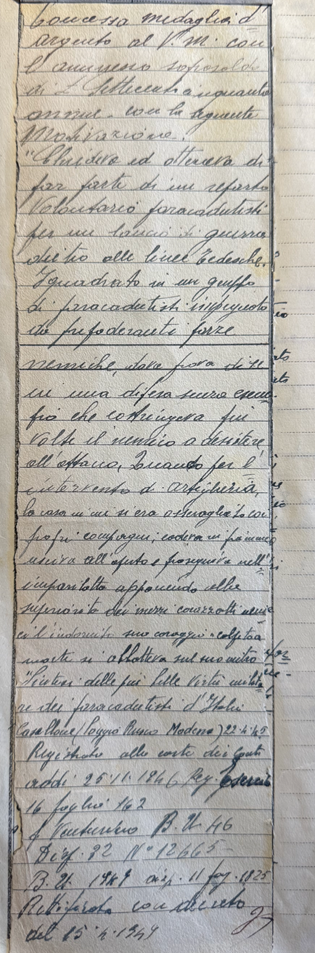 Concessa medaglia d'
argento al V. m. con
l'annesso soprasoldo
di L. Settecentocinquanta
annue. con la seguente
Motivazione:
"Chiedeva ed otteneva di
far parte di un reparto
Volontario paracadutisti
per un lancio di guerra
dietro alle linee Tedesche.
Inquadrato in un gruppo
di paracadutisti impegnato
da preponderanti forze
nemiche, dava prova di sè
in una difesa senza esem
pio che costringeva più
volte il nemico a desistere
all'attacco, Quando per l'
intervento d'artiglieria,
la casa in cui si era asserragliato coi
propri compagni, cadeva in fiamme
usciva all'aperto e proseguiva nell'
impari lotta opponendo alla
superiorità dei mezzi corazzati
l'indomito suo coraggio. colpito a
morte si abbatteva sul suo mitra
delle più belle virtù milita
re dei paracadutisti d'Italia
(Poggio Rusco Modena) 22-4-45
Registrato alla corte dei Conti
addì 25-11-1946 Reg. Esercito
16 foglio 162
B. U. 46
Disp. 22 N° 12665-
B. U. 1947 disp. 11 fog. 1825
con decreto
del 15-4-1949